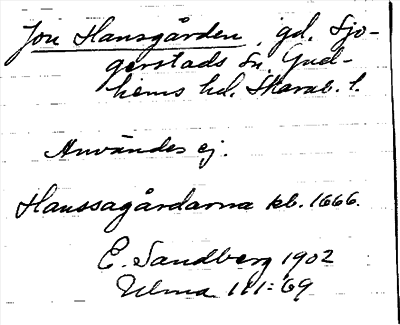 Jon Hansgården, gd. Sjo-
gerstads sn. Gud-
hems hd. Skarab. l.
Användes ej.
Hanssagårdarna kb. 1666.
E. Sandberg 1902
Ulma 111:69